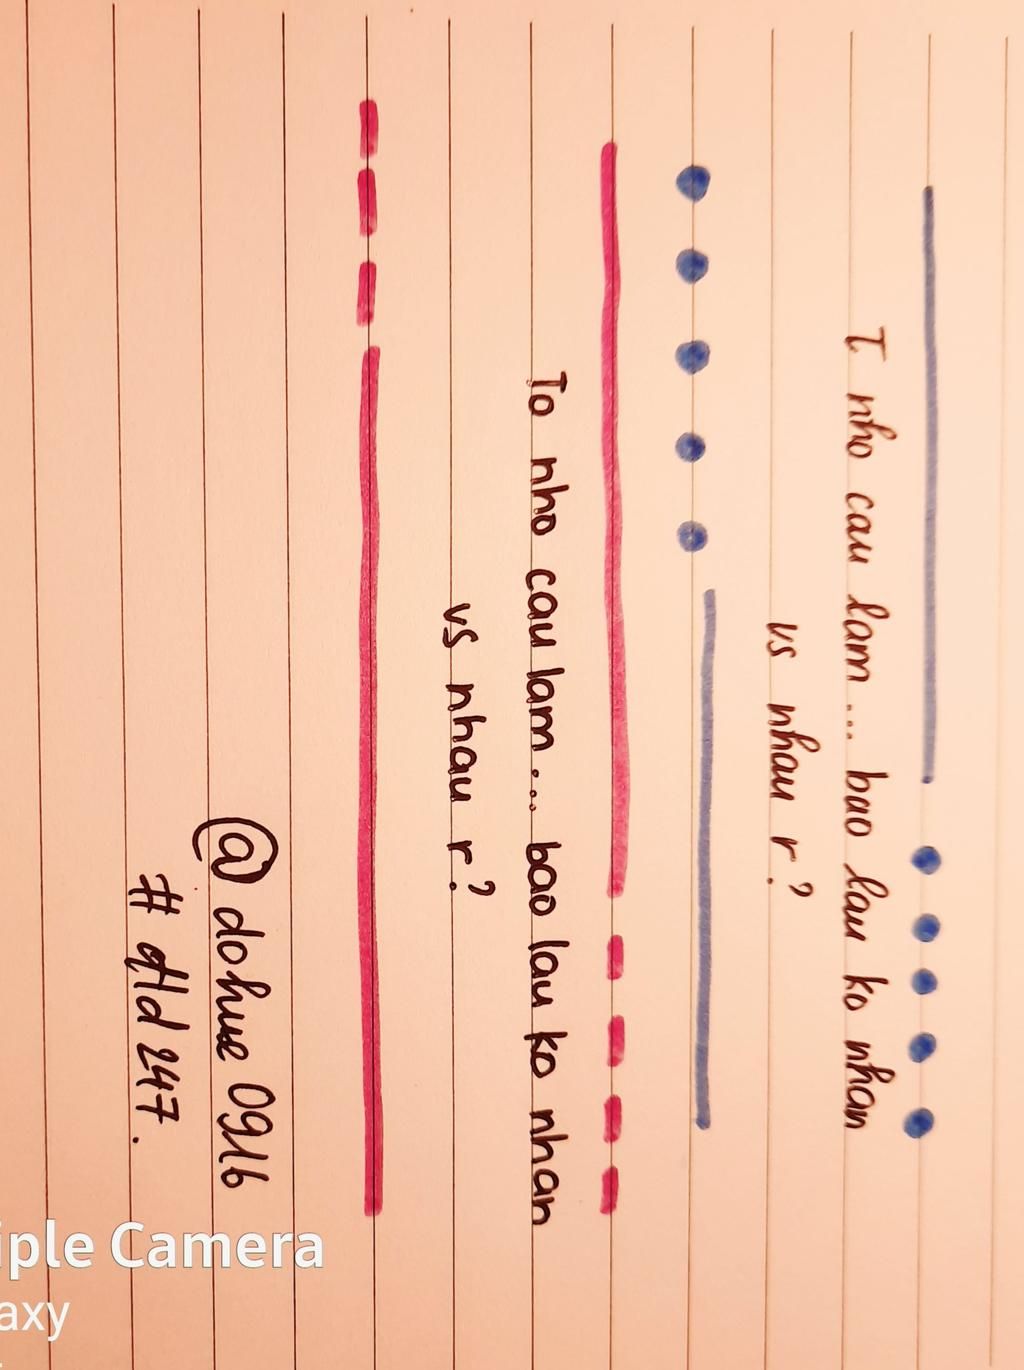 T nho cau lam... bao lau ko nhan
vs nhau r?
To nho cau lam... bao lau ko nhan
vs nhau r?
@dohue 0916
# dHd 247.
iple Camera
axy